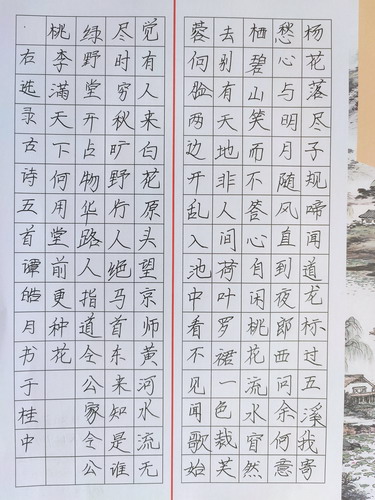 杨花落尽子规啼闻道龙标过五溪我寄
愁心与明月随风直到夜郎西问余何意
栖碧山笑而不答心自闲桃花流水窅然
去别有天地非人间荷叶罗裙一色裁芙
蓉向脸两边开乱入池中看不见闻歌始
觉有人来白花原头望京师黄河水流无
尽时穷秋旷野行人绝马首东来知是谁
绿野堂开占物华路人指道令公家令公
桃李满天下何用堂前更种花
右选录古诗五首谭皓月书于桂中